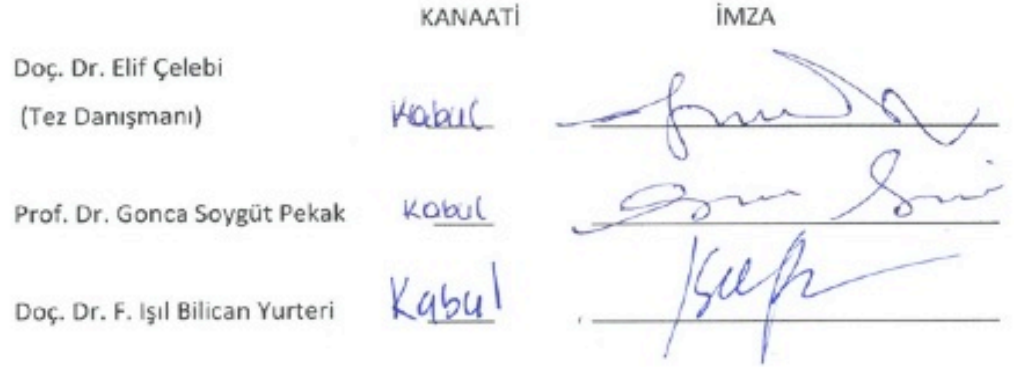 KANAATİ İMZA
Doç. Dr. Elif Çelebi
(Tez Danışmanı) Kabul
Prof. Dr. Gonca Soygüt Pekak Kabul
Doç. Dr. F. Işıl Bilican Yurteri Kabul